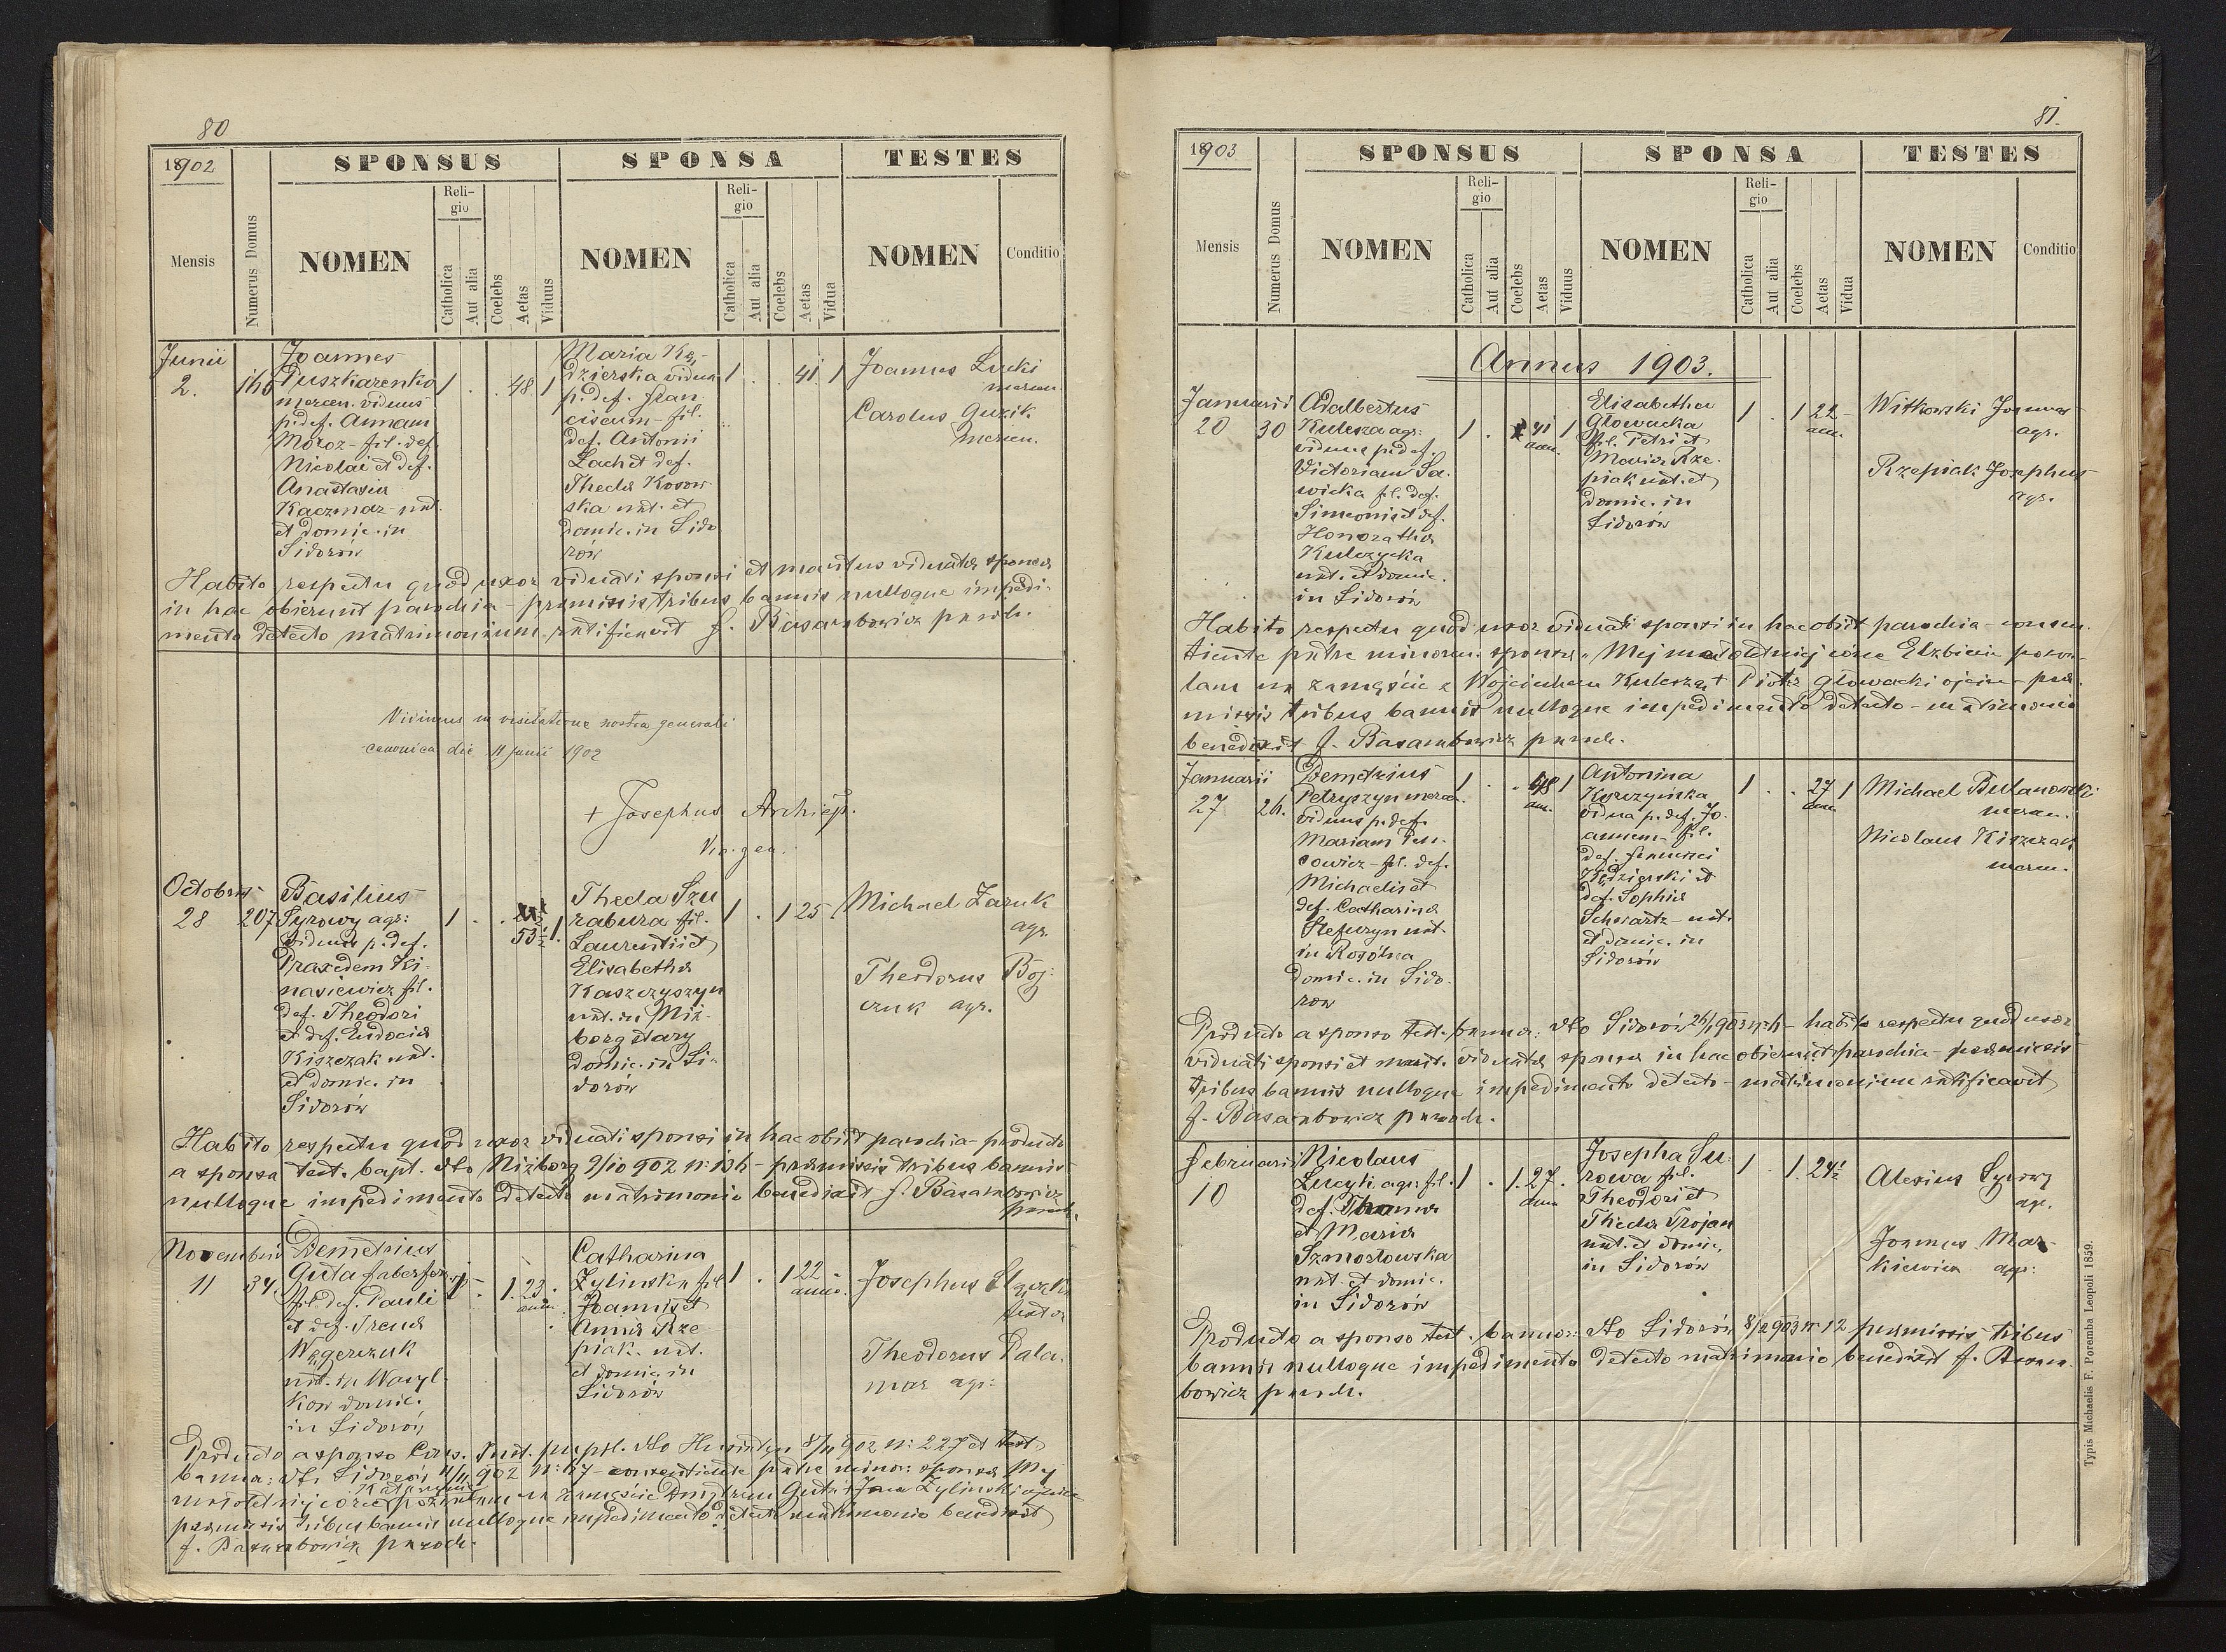 80
1902
SPONSUS
SPONSA
TESTES
Mensis
Numerus Domus
NOMEN
Religio
Catholica
Aut alia
Coelebs
Aetas
Viduus
NOMEN
Religio
Catholica
Aut alia
Coelebs
Aetas
Vidua
NOMEN
Conditio
Junii
2.
Joannes
Puszkarenko
mercen. viduus
p. def. Annam
Moroz - fil. def.
Nicolai et def.
Anastasia
Kaczmar - nat.
et domic. in
Sidorów
1 . . 48 1
Maria Kę-
dzierska vidua
p. def. Fran
ciscum - fil.
def. Antonii
Lach et def.
Thecla Kosow
ska nat. et
domic. in Sido
rów
1 . . 41 1
Joannes Lucki
mercen.
Carolus Guzik
mercen.
Habito respectu quod uxor viduati sponsi et maritus viduatæ sponsæ
in hac obierunt parochia - præmissis tribus bannis nulloque impedi-
mento detecto matrimonium ratificavit J. Basarabowicz paroch.
Vidimus in visitatione nostra generali
canonica die 11 Junii 1902
+ Josephus Archiep.
Octobris
28 207
Basilius
Syrowy agr:
viduus p. def.
Praxedem Ki-
nasiewicz fil.
def. Theodori
et def. Eudocia
Kiszczak nat.
et domic. in
Sidorów
1 . . 53½ 1.
Thecla Szu
rabura fil.
Laurentii et
Elisabetha
Kaszczyszyn
nat. in Niż-
borg stary
domic. in Si-
dorów
1 . 1 25
Michael Zaruk
agr.
Theodorus Boj-
czuk agr.
Habito respectu quod uxor viduati sponsi in hac obiit parochia - producto
a sponsa test. bapt. dto Niżborg 9/10 902 - præmissis tribus bannis
nulloque impedimento detecto matrimonio benedixit J. Basarabowicz
paroch.
Novembris
11 34.
Demetrius
Guta faber fer.
fil. def. Pauli
et def. Irena
Węgerczuk
nat. in Wasyl
kow domic.
in Sidorów
1 . 1. 23.
annor.
Catharina
Żylinska fil
Joannis et
Anna Rze
piak. nat.
et domic in
Sidorów
1 . 1 22
annor.
Josephus
Theodorus Pala-
mar agr:
Producto a sponso 8/11 902 n: 227 et test
bannor: dto Sidorów 902 - consentiente patre minor: sponsæ Mej
małoletniej córce Katarzynie na zamęście Dmytrem Guta Jan Żylinski ojciec
præmissis tribus bannis nulloque impedimento detecto matrimonio benedixit
J. Basarabowicz paroch.
81.
1903
SPONSUS
SPONSA
TESTES
Mensis
Numerus Domus
NOMEN
Religio
Catholica
Aut alia
Coelebs
Aetas
Viduus
NOMEN
Religio
Catholica
Aut alia
Coelebs
Aetas
Vidua
NOMEN
Conditio
Annus 1903.
Januarii
20 30
Adalbertus
Kulesza agr:
viduus p. def.
Victoriam Sa-
wicka fil. def.
Simeonis et def.
Honoratha
Kulczycka
nat. et domic.
in Sidorów
1 . 41 1
ann.
Elisabetha
Głowacka
fil. Petri et
Maria Rze-
piak nat. et
domic. in
Sidorów
1 . 1 22
ann.
Witkowski Joannes
agr.
Rzepiak Josephus
agr.
Habito respectu quod uxor viduati sponsi in hac obiit parochia - consen
tiente patre minoren. sponsæ "Mej małoletniej córce Elżbiecie pozwa-
lam na zamęście z Wojciechem Kuleszą + Piotr Głowacki ojciec - præ-
missis tribus bannis nulloque impedimento detecto - matrimonio
benedixit J. Basarabowicz paroch.
Januarii
27 26.
Demetrius
Petryszyn mercen.
viduus p. def.
Mariam
def.
Michaelis et
def. Catharina
Stefuryn nat.
in
domic. in Sido-
row
1 . . 48 1
ann.
Antonina
Korczyńska
vidua p. def. Jo-
annem - fil.
def. Francisci
Kędzierski et
def. Sophia
Schwartz - nat.
et domic. in
Sidorów
1 . . 27 1
ann.
Michael Bulanowski
mercen.
Nicolaus Kiszczak
mercen.
Producto a sponso test. bannor. dto Sidorów - habito respectu quod uxor
viduati sponsi et marit. viduatæ sponsæ in hac obierunt parochia - præmissis
tribus bannis nulloque impedimento detecto - matrimonium ratificavit
J. Basarabowicz paroch.
Februarii
10
Nicolaus
Lucyk agr: fil.
def. Thoma
et Maria
Szmorłowska
nat. et domic.
in Sidorów
1 . 1. 27.
ann.
Josepha Su-
rowa fil.
Theodori et
Thecla Trojan
nat. et domic.
in Sidorów
1 . 1. 24½
Alexius Syrowy
agr.
Joannes Mar-
kiewicz agr:
Producto a sponso test. bannor: dto Sidorów 8/2 903 n: 12 præmissis tribus
bannis nulloque impedimento detecto matrimonio benedixit J. Basara-
bowicz paroch.
Typis Michaelis F. Poremba Leopoli 1859.